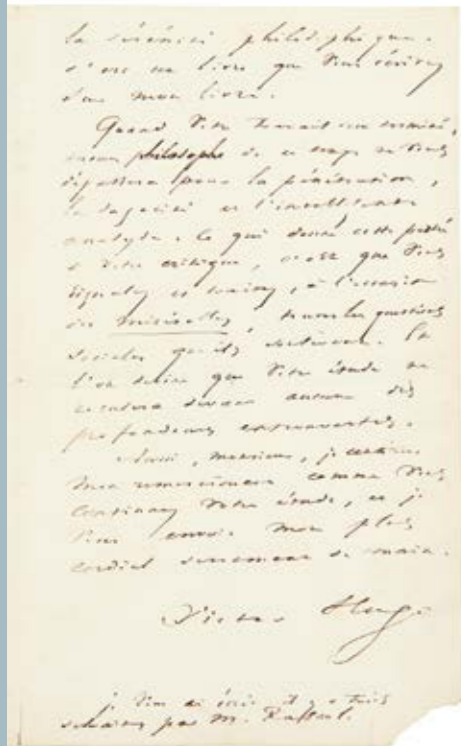 la sérénité philosophique.
c'est un livre que vous écrivez
sur mon livre.
Quand votre travail sera terminé,
aucun philosophe de ce temps ne vous
dépassera pour la pénétration,
la sagacité et l'excellente
analyse. Ce qui donne cette
à votre critique, c'est que vous
signalez et, à l'occasion
des misérables, toutes les questions
sociales qu'ils soulèvent. Et
l'on devine que votre étude ne
reculera devant aucune des
profondeurs entrouvertes.
Aussi, monsieur, je continue
mon remerciement comme vous
continuez votre étude, et je
vous envoie mon plus
cordial serrement de main.
Victor Hugo
je vous ai écrit il y a trois
semaines par M.